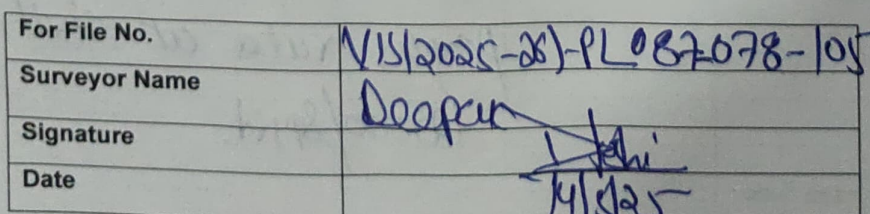 For File No. VIS(2025-26)-PL087-078-105
Surveyor Name Deepak
Signature
Date